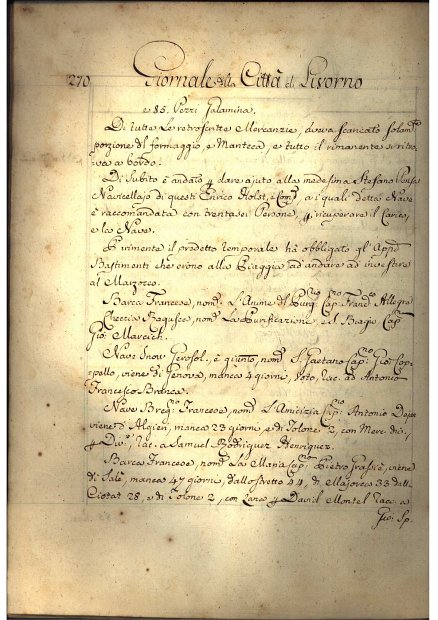 270
Giornale della Città di Livorno
e 85. Pezzi Galamina.
Di tutte Le retroscritte Mercanzie, aveva scaricato solamte
porzione di formaggio, e Manteca, e tutto il rimanente si ritro,
va a bordo.
Di Subito è andato p dare ajuto alla medesima Stefano
Navicellajo di questi Enrico Holst, e Compi, a i quali detta Nave
è raccomandata con trentasei Persone, p ricuperare il Carico,
e la Nave.
Parimente il predetto temporale hà obbligato gl'Appò
Bastimenti che erono alla Piaggia ad andare ad investire
al Marzocco.
Barca Francese, nomta L'Anime del Purgrio Capno Francco Allegra
Checcia Ragusea, nomta La Purificazione, ed il Capno
Gio:
Nave Snow Gerosol., è giunto, nomto S. Gaetano Capno Gio: Cop,
pollo, viene di Genova, manca 4 giorni, Voto, Rac. ad Antonio
Francesco Branca.
Nave Breqno Francese, nomto L'Amicizia Capno Antonio
viene d'Algieri, manca 23 giorni e di Tolone 2, con Merc. div.,
p Divsi, Rac. a Samuel Rodriguez Henriquez.
Barca Francese, nomta La Maria Capno Pietro, viene
di Salè, manca 47 giorni, dallo stretto 44, di Majorca 33 dalla
Ciotat 28, e di Tolone 2, con Lana p David Montel Rac. a
Gio: Sp.